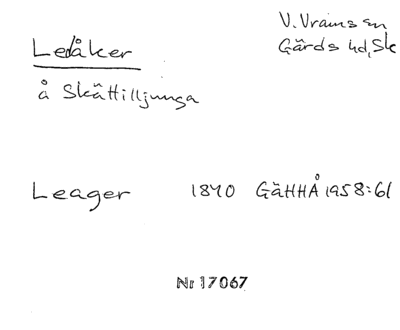 Ledåker
V. Vrams sn
Gärds hd, Sk
å Skättilljunga
Leager 1840 GäHHÅ 1958:61
Nr 17067